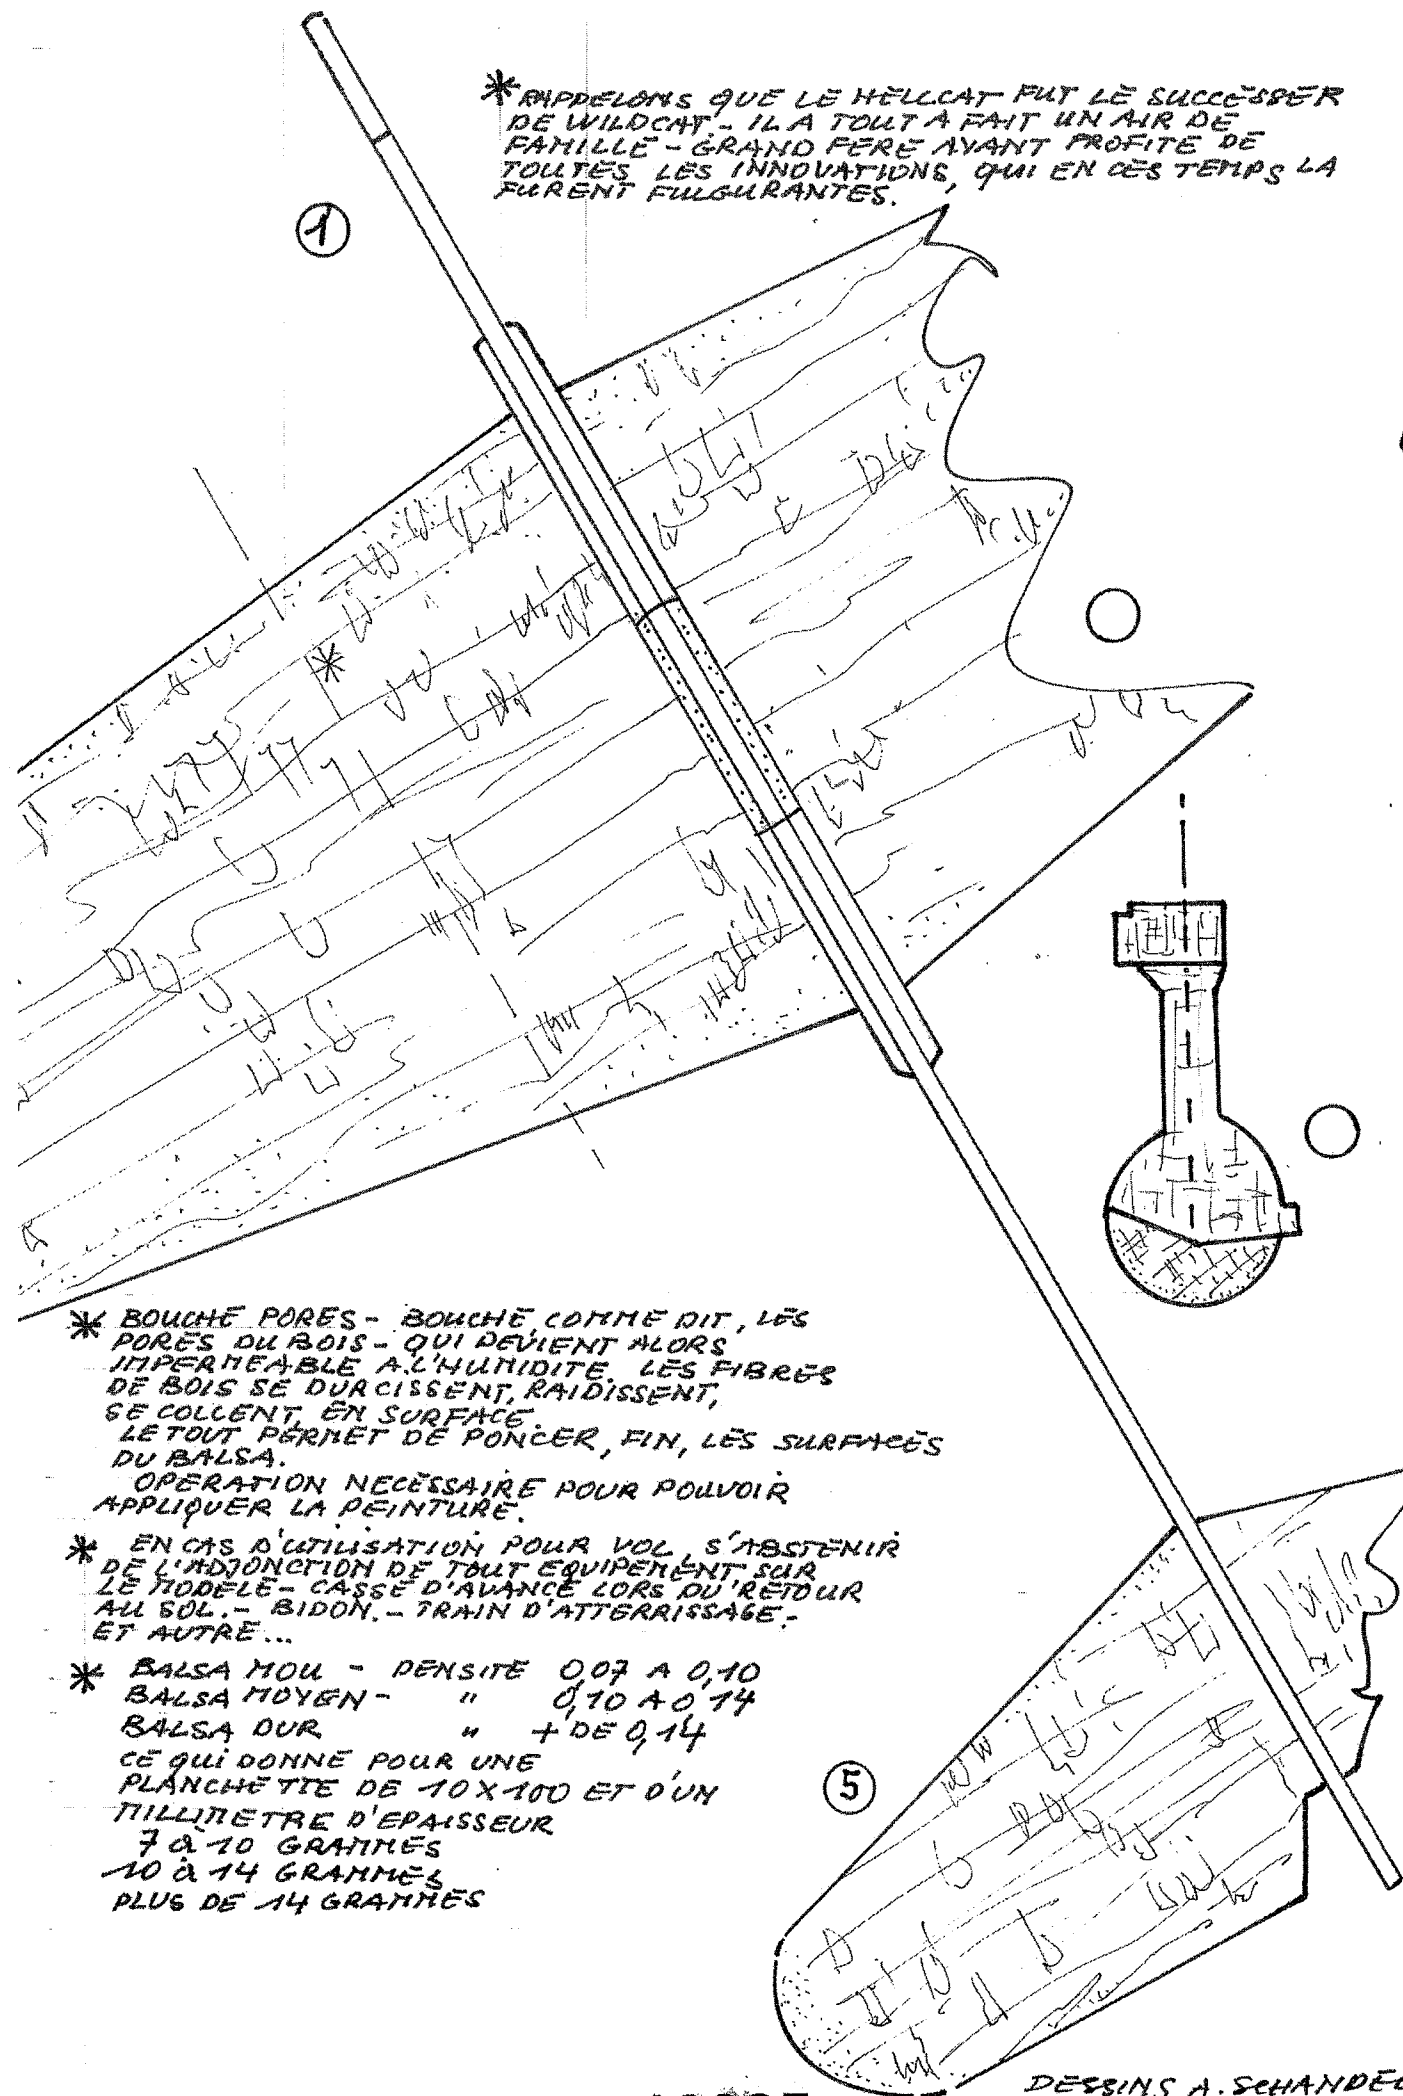 * RAPPELONS QUE LE HELLCAT FUT LE SUCCESSER
DE WILDCAT. - IL A TOUT A FAIT UN AIR DE
FAMILLE - GRAND FERE AYANT PROFITE DE
TOUTES LES INNOVATIONS, QUI EN CES TEMPS LA
FURENT FULGURANTES.
1
*
* BOUCHE PORES - BOUCHE, COMME DIT, LES
PORES DU BOIS - QUI DEVIENT ALORS
IMPERMEABLE A L'HUMIDITE. LES FIBRES
DE BOIS SE DURCISSENT, RAIDISSENT,
SE COLLENT, EN SURFACE.
LE TOUT PERMET DE PONCER, FIN, LES SURFACES
DU BALSA.
OPERATION NECESSAIRE POUR POUVOIR
APPLIQUER LA PEINTURE.
* EN CAS D'UTILISATION POUR VOL, S'ABSTENIR
DE L'ADJONCTION DE TOUT EQUIPEMENT SUR
LE MODELE - CASSE D'AVANCE LORS DU RETOUR
AU SOL. - BIDON. - TRAIN D'ATTERRISSAGE -
ET AUTRE...
* BALSA MOU - DENSITE 0,07 A 0,10
BALSA MOYEN - " 0,10 A 0,14
BALSA DUR " + DE 0,14
CE QUI DONNE POUR UNE
PLANCHETTE DE 10 X 100 ET D'UN
MILLIMETRE D'EPAISSEUR
7 à 10 GRAMMES
10 à 14 GRAMMES
PLUS DE 14 GRAMMES
5
DESSINS A. SCHANDEL